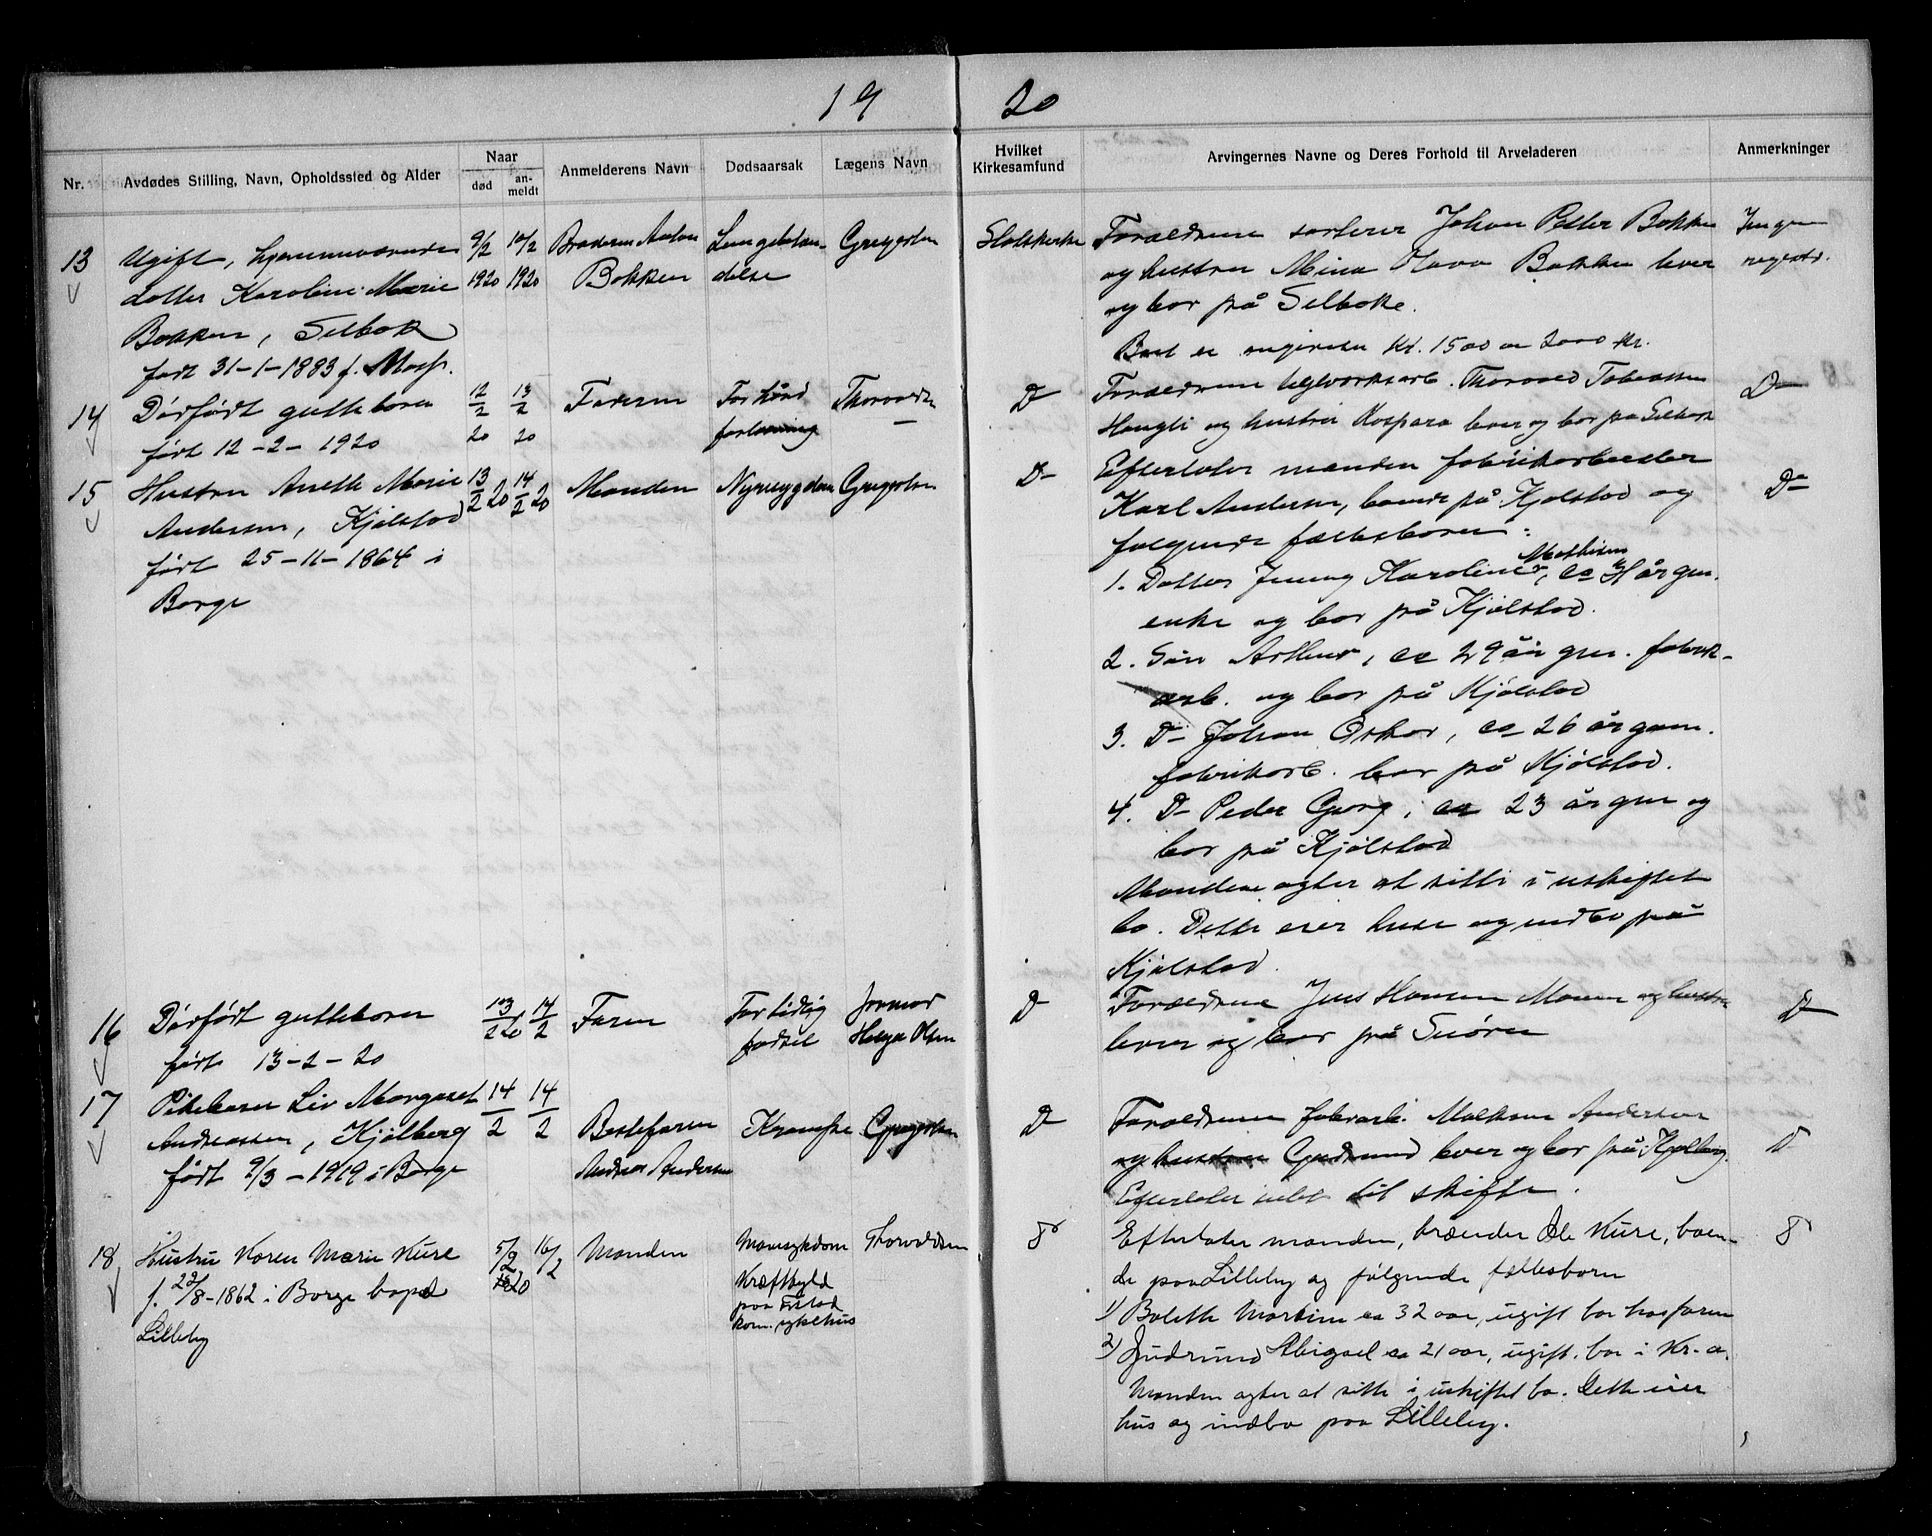 19 20
Nr. Avdødes Stilling, Navn, Opholdssted og Alder Naar Anmelderens Navn Dødsaarsak Lægens Navn Hvilket Kirkesamfund Arvingernes Navne og Deres Forhold til Arveladeren Anmerkninger
død an-meldt
13
Ugift, hjemmeværende
datter Karoline Marie
Bakken, Selbak
født 31-1-1883 f. Moss.
9/2 1920
10/2 1920
Broderen Anton
Bakken
Lungebetæn-
delse
Gregersen
Statskirke
Forældrene sorterer Johan Petter Bakken
og hustru Mina Olava Bakken lever
og bor på Selbak.
Boet er angivelse kr. 1500 a 2000 kr.
Ingen
registr.
14
Dødfødt guttebarn
født 12-2-1920
12/2 20
13/2 20
Faderen
For hård
forløsning
Thorvaldsen
D-
Forældrene teglverksarb. Thorvald Tobiassen
Haugli og hustru Kaspara lever og bor på Selbak
D-
15
Hustru Anette Marie
Andersen, Kjølstad
født 25-11-1864 i
Borge
13/2 20
14/2 20
Manden
Nyresygdom
Gregersen
D-
Efterlater manden fabrikarbeider
Karl Andersen, boende på Kjølstad og
følgende fællesbarn:
1. Datter Jenny Karoline Mathisen, ca 31 år gm.
enke og bor på Kjølstad.
2. Søn Arthur, ca 29 år gm. fabrik-
arb. og bor på Kjølstad
3. D- Johan Oskar, ca 26 år gam.
fabrikarb. bor på Kjølstad.
4. D- Peder Georg, ca 23 år gm og
bor på Kjølstad
Manden agter at sitte i uskiftet
bo. Dette eier huse og indbo på
Kjølstad.
D-
16
Dødfødt guttebarn
født 13-2-20
13/2 20
14/2
Faren
For tidlig
fødsel
Jormor
Helga Olsen
D-
Forældrene Jens Hansen Moum og hustru
lever og bor på Snøren
D-
17
Pikebarn Liv Margaret
Andreassen, Kjølberg
født 9/3-1919 i Borge
14/2
14/2
Bestefaren
Andreas Andersen
Krampe
Gregersen
D-
Forældrene fabr.arb. Andersen
og hustru Gudrund lever og bor på Kjølberg.
Efterlater intet til skifte.
D
18
Hustru Karen Marie Kure
f. 22/8-1862 i Borge bopæl
Lilleby
5/2 20
16/2
Manden
Mavesykdom
Kræftsvyld
paa F.stad
kom. sykehus
Thorvaldsen
D
Efterlater manden, brænder Ole Kure, boen-
de paa Lilleby og følgende fællesbarn
1) Bolette Martine ca 32 aar, ugift bor hos faren
2) Gudrund Abigael ca 21 aar, ugift. bor i Kr.-a.
Manden agter at sitte i uskiftet bo. Dette eier
hus og indbo paa Lilleby.
D